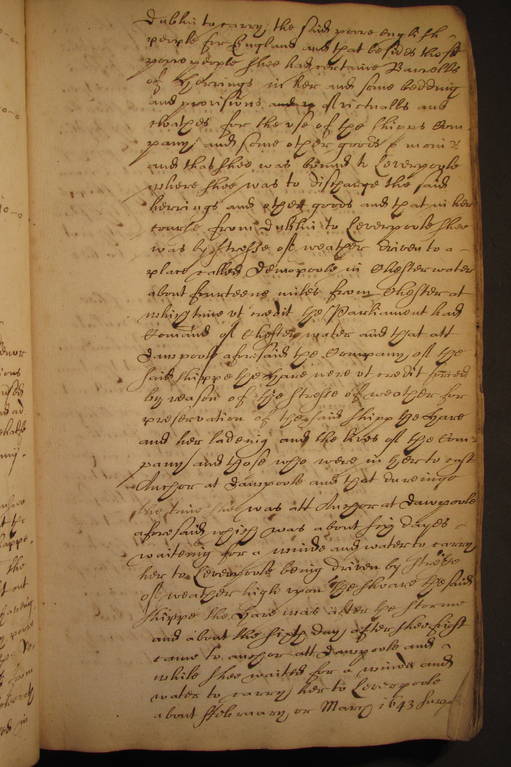 Dublin to carry the said poore english
people for England and that besides those
poore people shee had certaine Barrells
of Herrings in her and some bedding
and provisions and of victualls and
cloathes for the use of the shipps Com-
pany and some other goods &
and that shee was bound to Leverpoole
where shee was to discharge the said
herrings and other goods and that in her
course from Dublin to Leverpoole shee
was by stresse of weather driven to a
place called Dawpoole in Chester water
about fourteene miles from Chester at
which time ut credit the Parliament had
Comand of Chester water and that att
Dawpoole aforesaid the Company of the
said shippe the Hare were ut credit forced
by reason of the stresse of weather for
preservation of the said shipp the Hare
and her ladeing and the lives of the Com-
pany and those who were in her to cast
Anchor at Dawpoole and that dureinge
the time shee was att Anchor at Dawpoole
aforesaid which was about six dayes
waiteing for a winde and water to carry
her to Leverpoole being driven by stresse
of weather high upon the shoare the said
shippe the Hare was after the storme
and about the sixth day after shee first
came to anchor att Dawpoole and
while shee waited for a winde and
water to carry her to Leverpoole
about ffebruary or March 1643